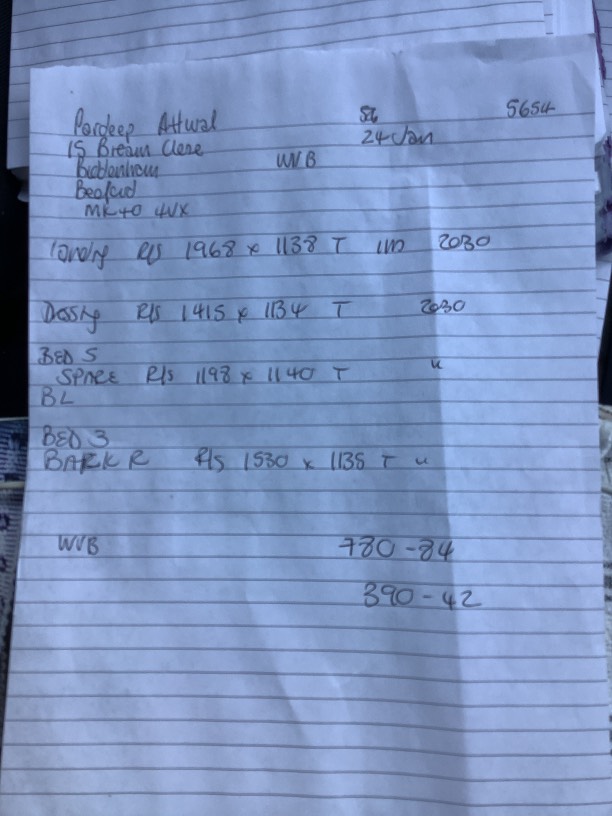 Pardeep Attwal 56 5654
15 Bream Close 24 Jan
Biddenham WVB
Bedford
MK40 4UX
R/S 1968 x 1138 T 1M 2030
Dessing R/S 1415 x 1134 T 2030
BED 5
SPACE R/S 1198 x 1140 T "
BL
BED 3
BARK R R/S 1530 x 1135 T "
WVB 780-84
390-42